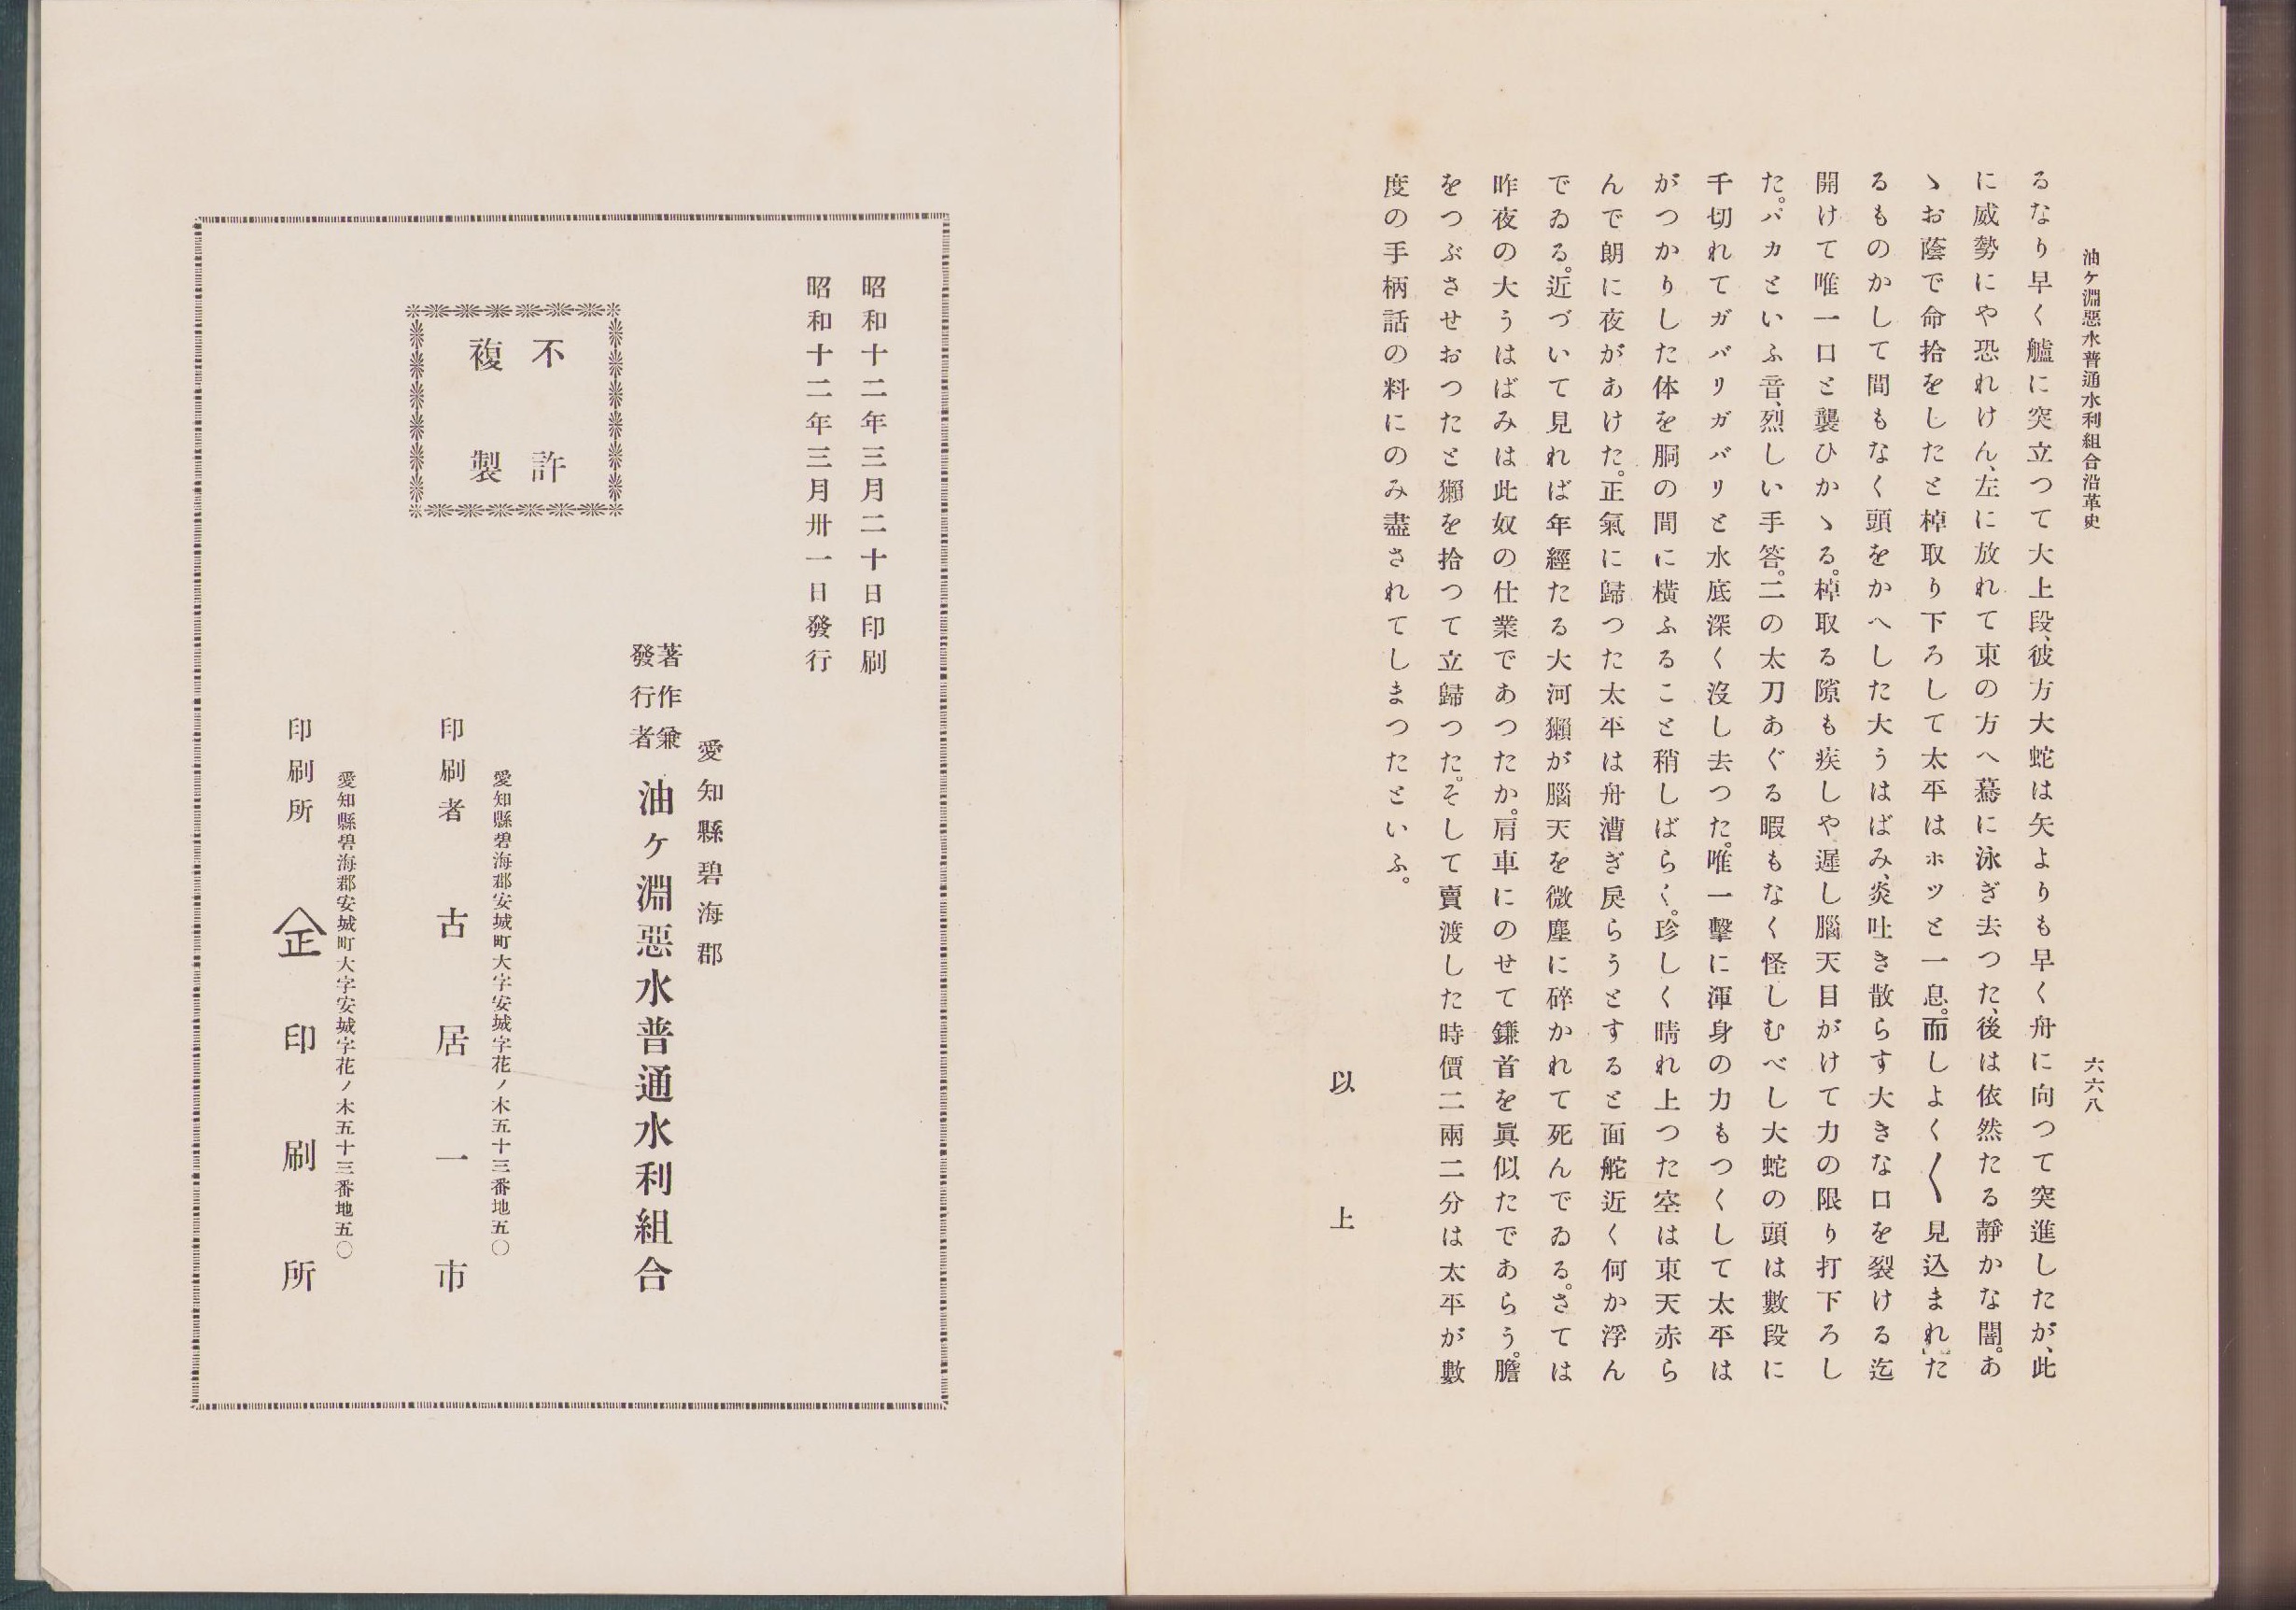 油ケ淵惡水普通水利組合沿革史
六六八
るなり早く艫に突立つて大上段、彼方大蛇は矢よりも早く舟に向つて突進したが、此
に威勢にや恐れけん、左に放れて東の方へ驀に泳ぎ去つた、後は依然たる靜かな闇。あ
ゝお蔭で命拾をしたと棹取り下ろして太平はホツと一息。而しよく〱見込まれた
るものかして間もなく頭をかへした大うはばみ、炎吐き散らす大きな口を裂ける迄
開けて唯一口と襲ひかゝる。棹取る隙も疾しや遲し腦天目がけて力の限り打下ろし
た。バカといふ音、烈しい手答。二の太刀あぐる暇もなく怪しむべし大蛇の頭は數段に
千切れてガバリガバリと水底深く沒し去つた。唯一擊に渾身の力もつくして太平は
がつかりした体を胴の間に橫ふること稍しばらく。珍しく晴れ上つた空は東天赤ら
んで朗に夜があけた。正氣に歸つた太平は舟漕ぎ戾らうとすると面舵近く何か浮ん
でゐる。近づいて見れば年經たる大河獺が腦天を微塵に碎かれて死んでゐる。さては
昨夜の大うはばみは此奴の仕業であつたか。肩車にのせて鎌首を眞似たであらう。膽
をつぶさせおつたと獺を拾つて立歸つた。そして賣渡した時價二兩二分は太平が數
度の手柄話の料にのみ盡されてしまつたといふ。
以上
昭和十二年三月二十日印刷
昭和十二年三月卅一日發行
不許
複製
愛知縣碧海郡
著作兼
發行者
油ケ淵惡水普通水利組合
愛知縣碧海郡安城町大字安城字花ノ木五十三番地五〇
印刷者 古居一市
愛知縣碧海郡安城町大字安城字花ノ木五十三番地五〇
印刷所 𠆢正印刷所